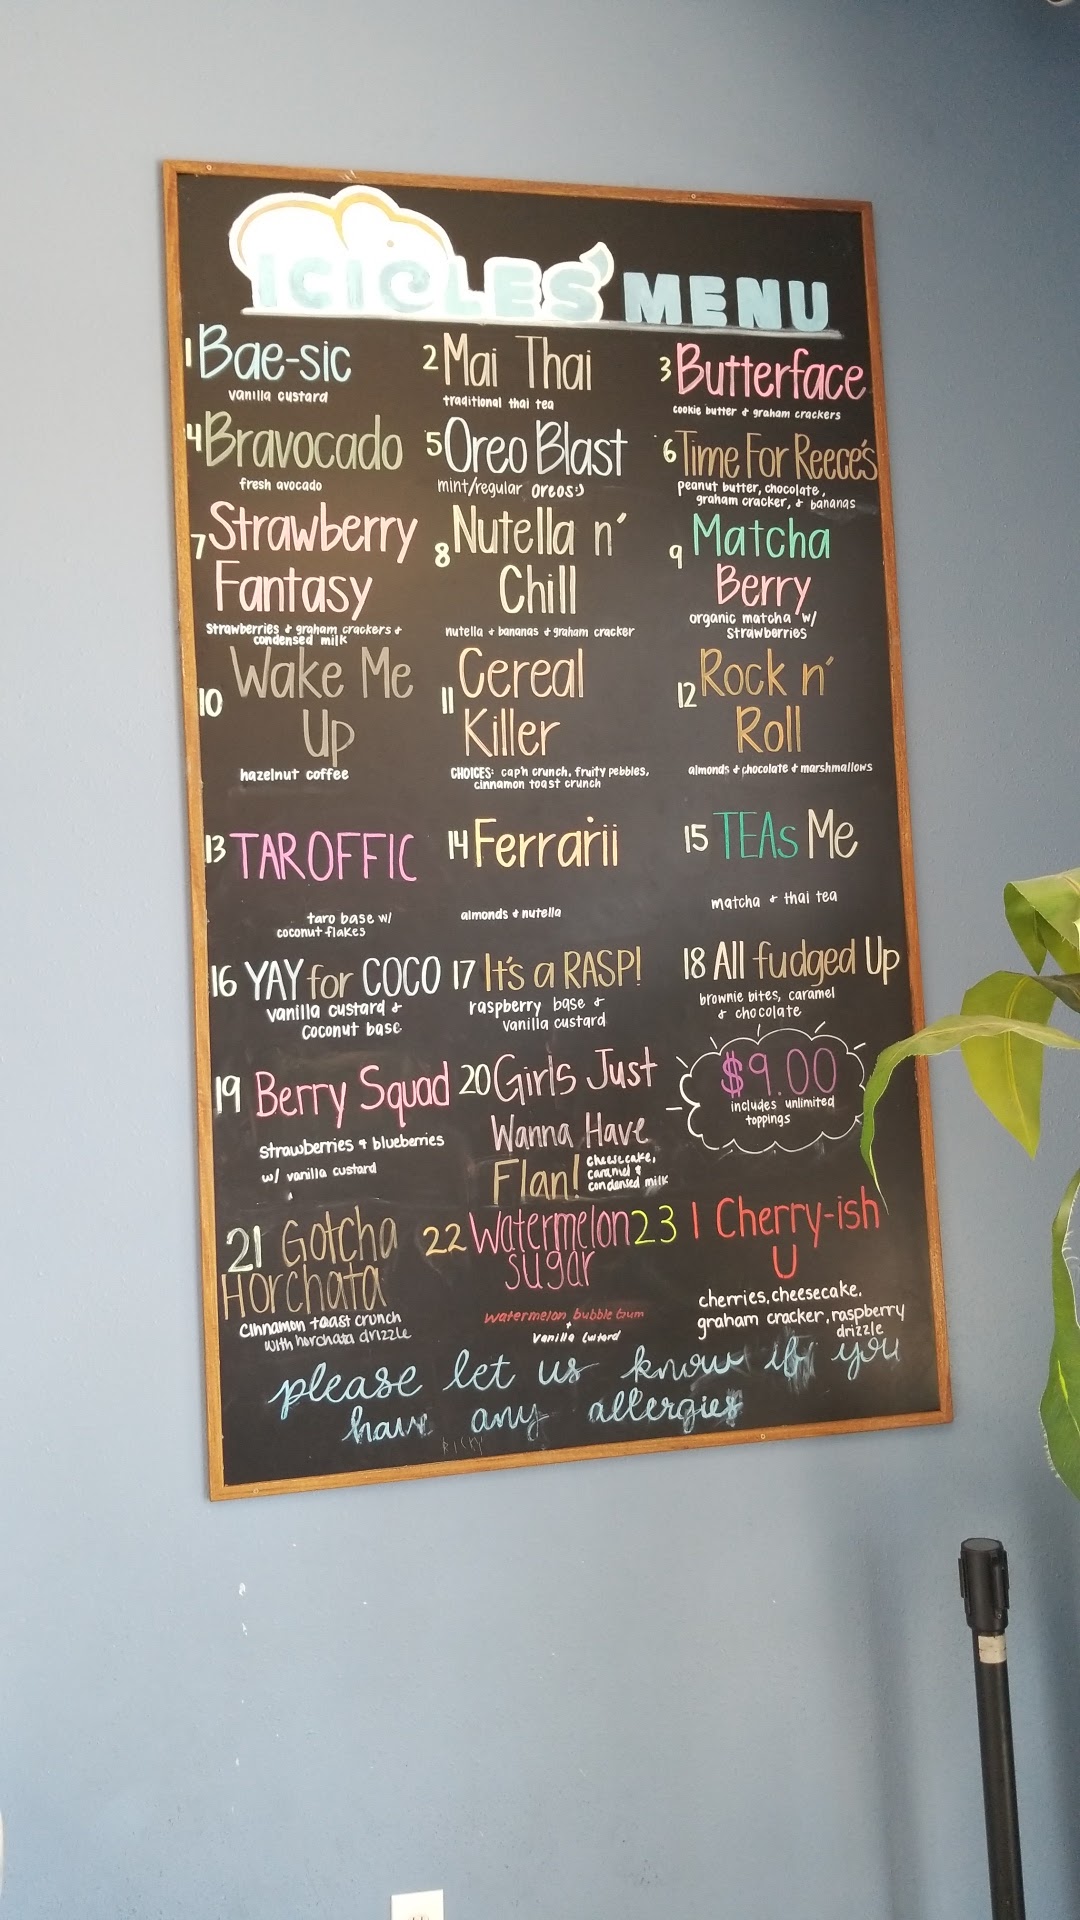 ICICLES' MENU
1 Bae-sic
vanilla custard
2 Mai Thai
traditional thai tea
3 Butterface
cookie butter & graham crackers
4 Bravocado
fresh avocado
5 Oreo Blast
mint/regular oreos:)
6 Time For Reece's
peanut butter, chocolate,
graham cracker, & bananas
7 Strawberry
Fantasy
strawberries & graham crackers &
condensed milk
8 Nutella n'
Chill
nutella & bananas & graham cracker
9 Matcha
Berry
organic matcha w/
strawberries
10 Wake Me
Up
hazelnut coffee
11 Cereal
Killer
CHOICES: cap'n crunch, fruity pebbles,
cinnamon toast crunch
12 Rock n'
Roll
almonds & chocolate & marshmallows
13 TAROFFIC
taro base w/
coconut flakes
14 Ferrarii
almonds & nutella
15 TEAs Me
matcha & thai tea
16 YAY for COCO
vanilla custard &
coconut base
17 It's a RASP!
raspberry base &
vanilla custard
18 All fudged Up
brownie bites, caramel
& chocolate
19 Berry Squad
strawberries & blueberries
w/ vanilla custard
20 Girls Just
Wanna Have
Flan!
cheesecake,
caramel &
condensed milk
$9.00
includes unlimited
toppings
21 Gotcha
Horchata
cinnamon toast crunch
with horchata drizzle
22 Watermelon
sugar
watermelon bubble gum
+
vanilla custard
23 I Cherry-ish
U
cherries, cheesecake,
graham cracker, raspberry
drizzle
please let us know if you
have any allergies
RICKY